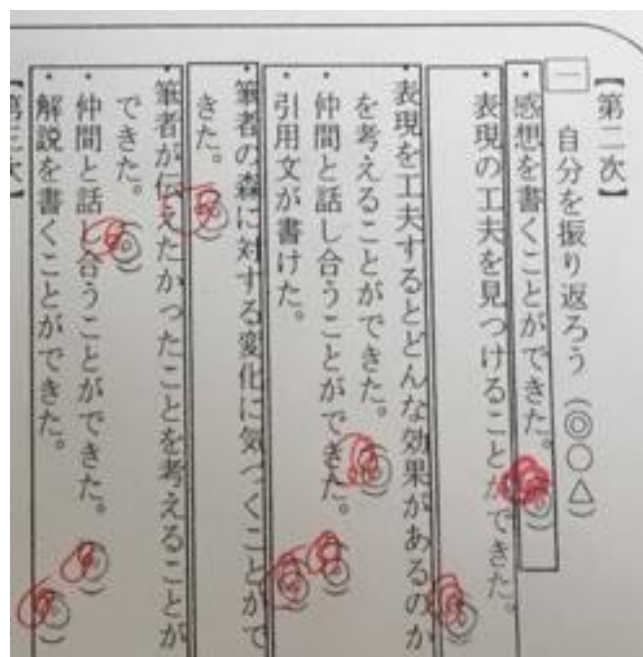 【第二次】
一 自分を振り返ろう (◎○△)
・感想を書くことができた。 (◎)
・表現の工夫を見つけることができた。 (◎)
・表現を工夫するとどんな効果があるのか
を考えることができた。 (◎)
・仲間と話し合うことができた。 (◎)
・引用文が書けた。 (◎)
・筆者の森に対する変化に気づくことがで
きた。 (◎)
・筆者が伝えたかったことを考えることが
できた。 (◎)
・仲間と話し合うことができた。 (◎)
・解説を書くことができた。 (◎)
【第三次】